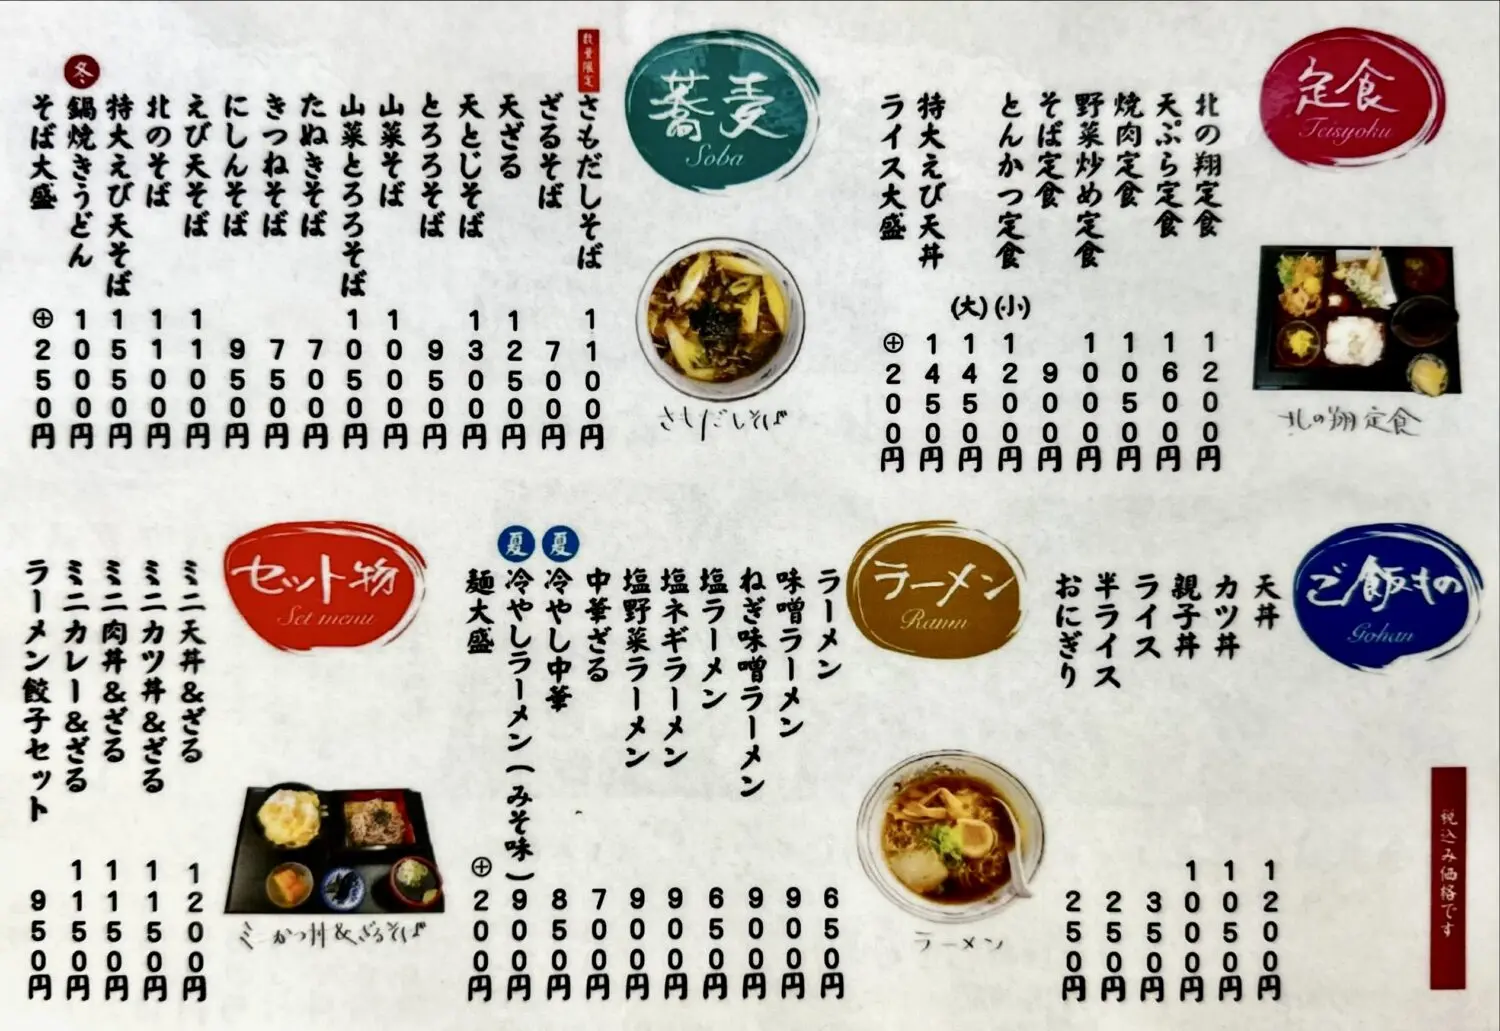 定食
Teisyoku
北の翔定食 1200円
天ぷら定食 1600円
焼肉定食 1050円
野菜炒め定食 1000円
そば定食 900円
とんかつ定食 (小) 1200円
(大) 1450円
特大えび天丼 1450円
ライス大盛 ⊕200円
北の翔定食
蕎麦
Soba
数量限定
さもだしそば 1100円
ざるそば 700円
天ざる 1250円
天とじそば 1300円
とろろそば 950円
山菜そば 1000円
山菜とろろそば 1050円
たぬきそば 700円
きつねそば 750円
にしんそば 950円
えび天そば 1100円
北のそば 1100円
特大えび天そば 1550円
冬 鍋焼きうどん 1000円
そば大盛 ⊕250円
さもだしそば
ご飯もの
Gohan
天丼 1200円
カツ丼 1050円
親子丼 1000円
ライス 350円
半ライス 250円
おにぎり 250円
税込み価格です
ラーメン
Ramn
ラーメン 650円
味噌ラーメン 900円
ねぎ味噌ラーメン 900円
塩ラーメン 650円
塩ネギラーメン 900円
塩野菜ラーメン 900円
中華ざる 700円
夏 冷やし中華 850円
夏 冷やしラーメン(みそ味) 900円
麺大盛 ⊕200円
ラーメン
セット物
Set menu
ミニ天丼&ざる 1200円
ミニカツ丼&ざる 1150円
ミニ肉丼&ざる 1150円
ミニカレー&ざる 1150円
ラーメン餃子セット 950円
ミニかつ丼&ざるそば